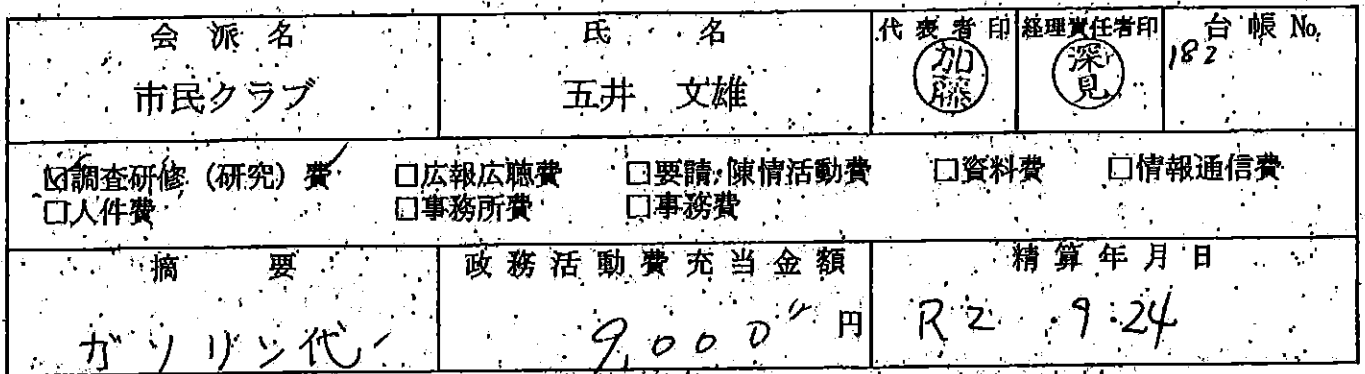 会派名 氏名 代表者印 経理責任者印 台帳No.
市民クラブ 五井 文雄 加藤 深見 182
☑調査研修(研究)費 □広報広聴費 □要請・陳情活動費 □資料費 □情報通信費
□人件費 □事務所費 □事務費
摘要 政務活動費充当金額 精算年月日
ガソリン代 9,000円 R2.9.24